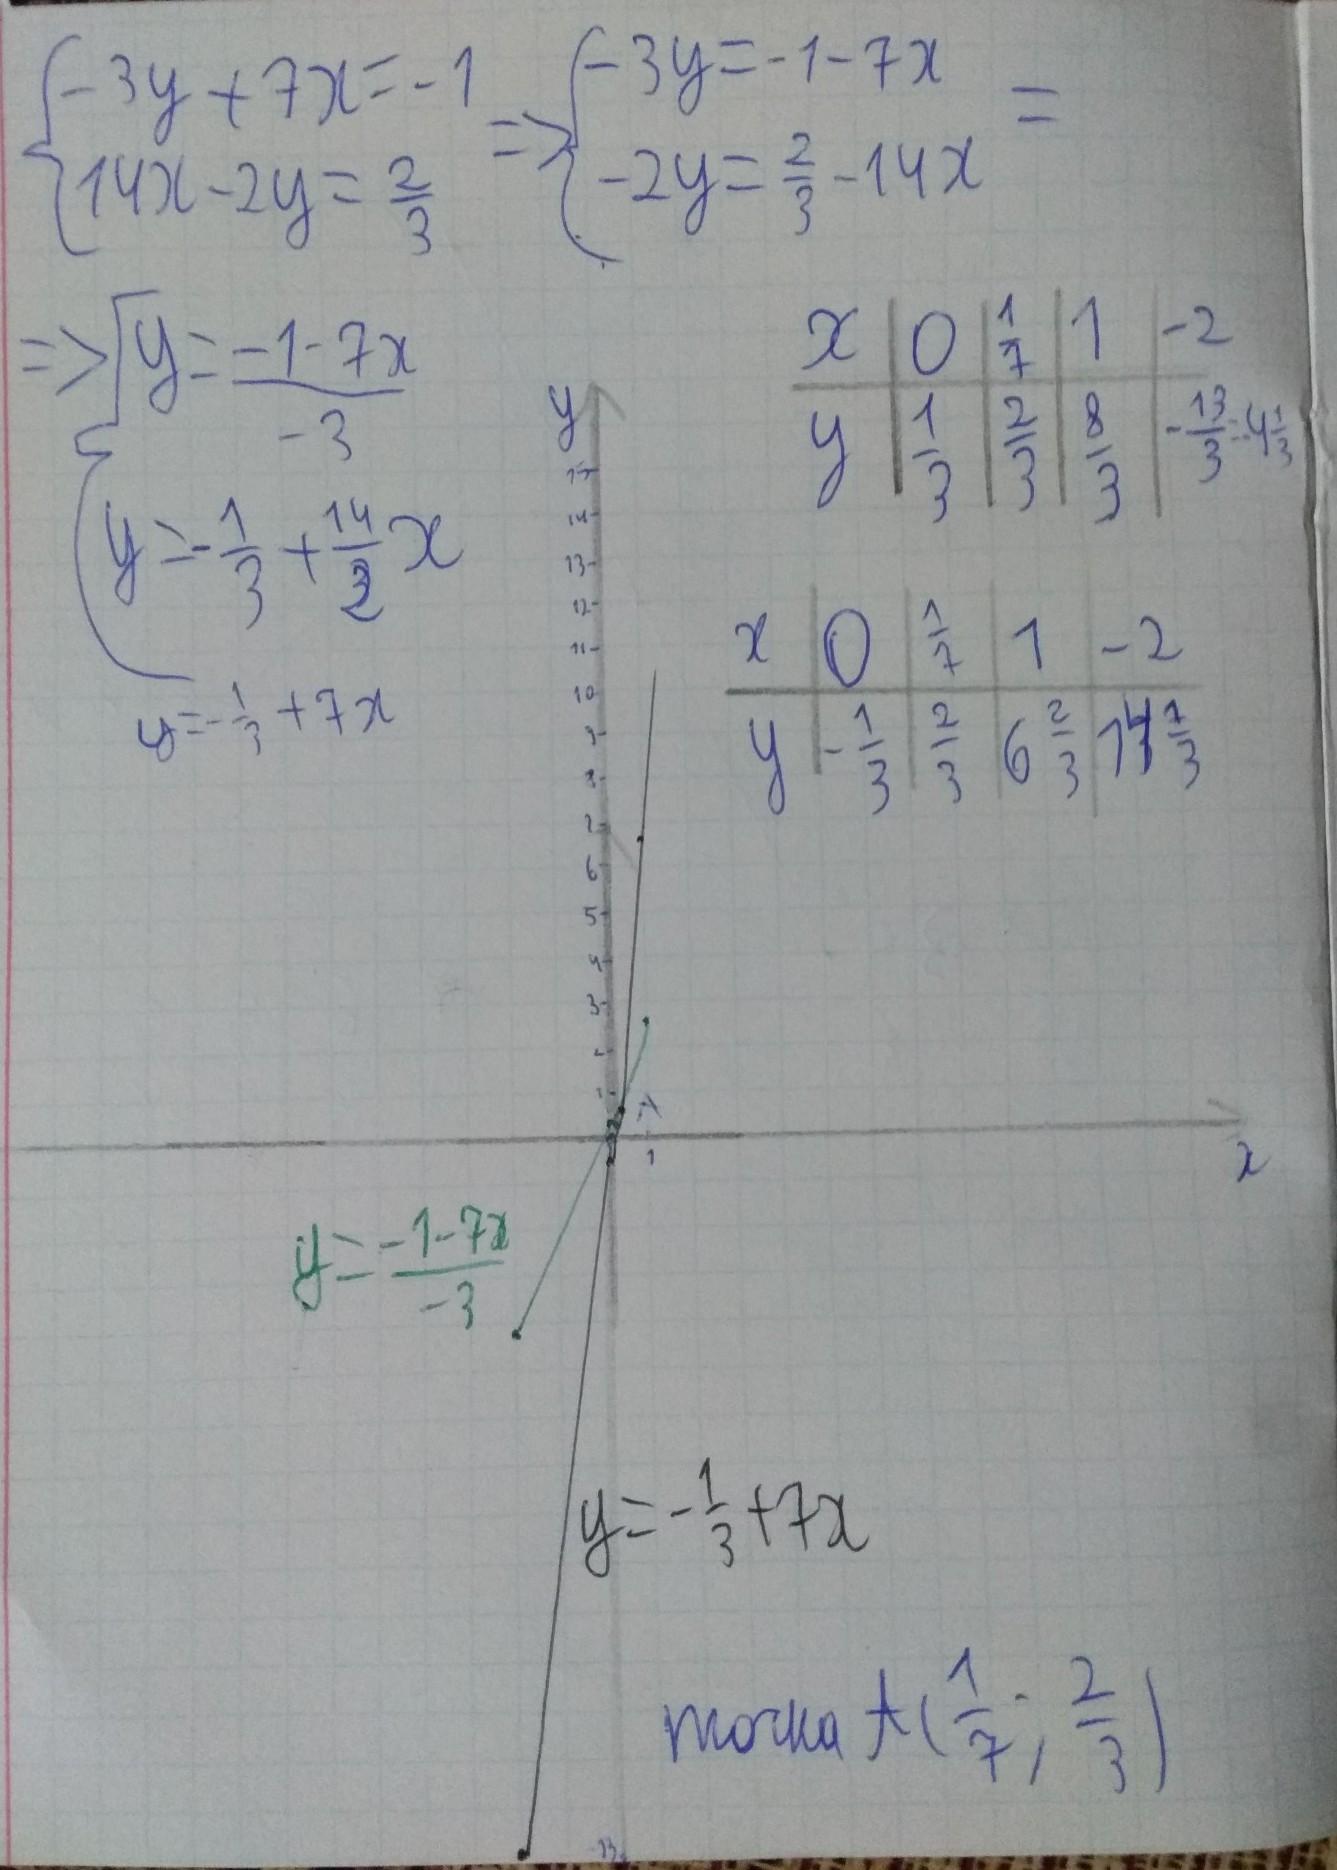 { -3y + 7x = -1 => { -3y = -1 - 7x =
14x - 2y = 2/3 -2y = 2/3 - 14x
=> { y = (-1 - 7x)/(-3)
y = -1/3 + 14/2 x
y = -1/3 + 7x
x | 0 | 1/7 | 1 | -2
y | 1/3 | 2/3 | 8/3 | -13/3 = -4 1/3
x | 0 | 1/7 | 1 | -2
y | -1/3 | 2/3 | 6 2/3
y
14
13
12
11
10
9
8
7
6
5
4
3
2
1
A
1
x
y = (-1 - 7x)/(-3)
y = -1/3 + 7x
точка A(1/7; 2/3)